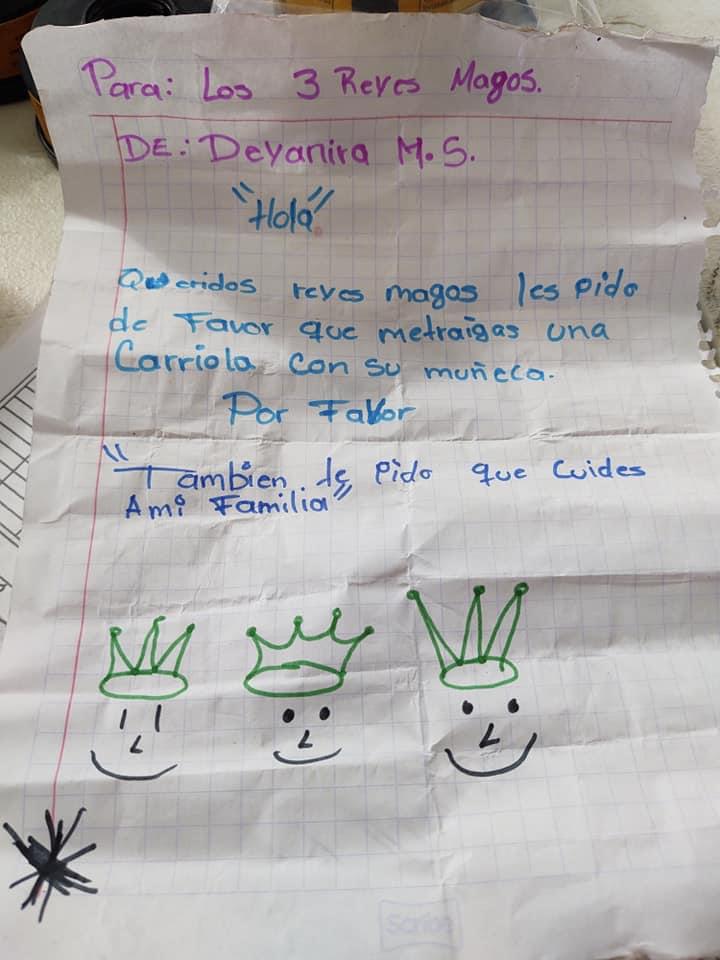 Para: Los 3 Reyes Magos.
DE: Deyanira M.S.
"Hola"
Queridos reyes magos les pido
de Favor que metraigas una
Carriola con su muñeca.
Por Favor
"Tambien le pido que Cuides
Ami Familia"
Scribe